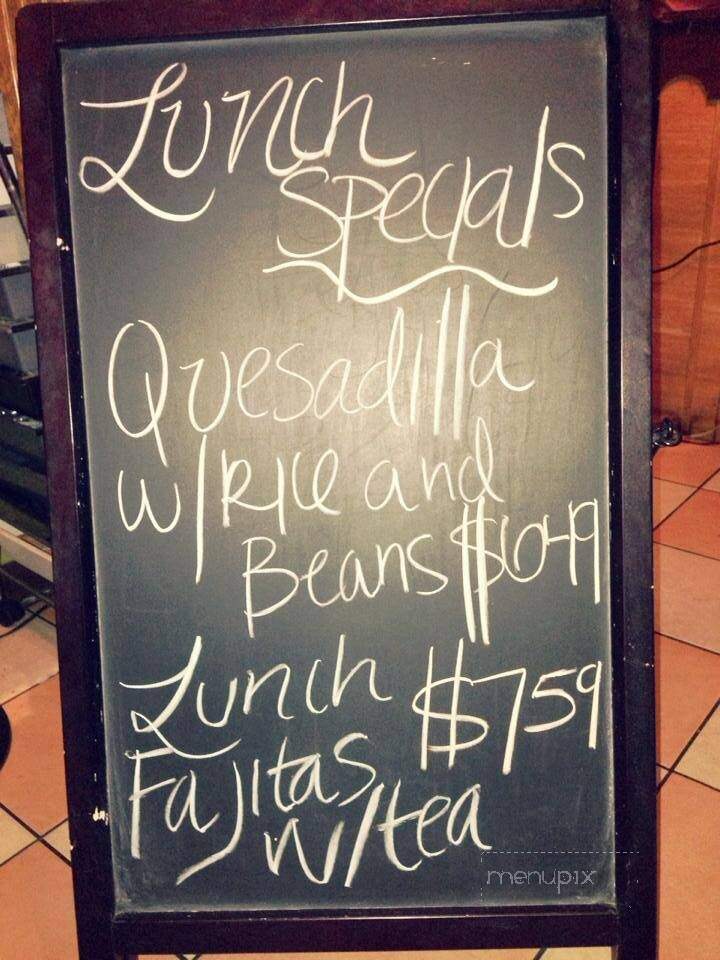 Lunch
Specials
Quesadilla
w/ Rice and
Beans $6.49
Lunch $7.59
Fajitas
w/tea
menupix